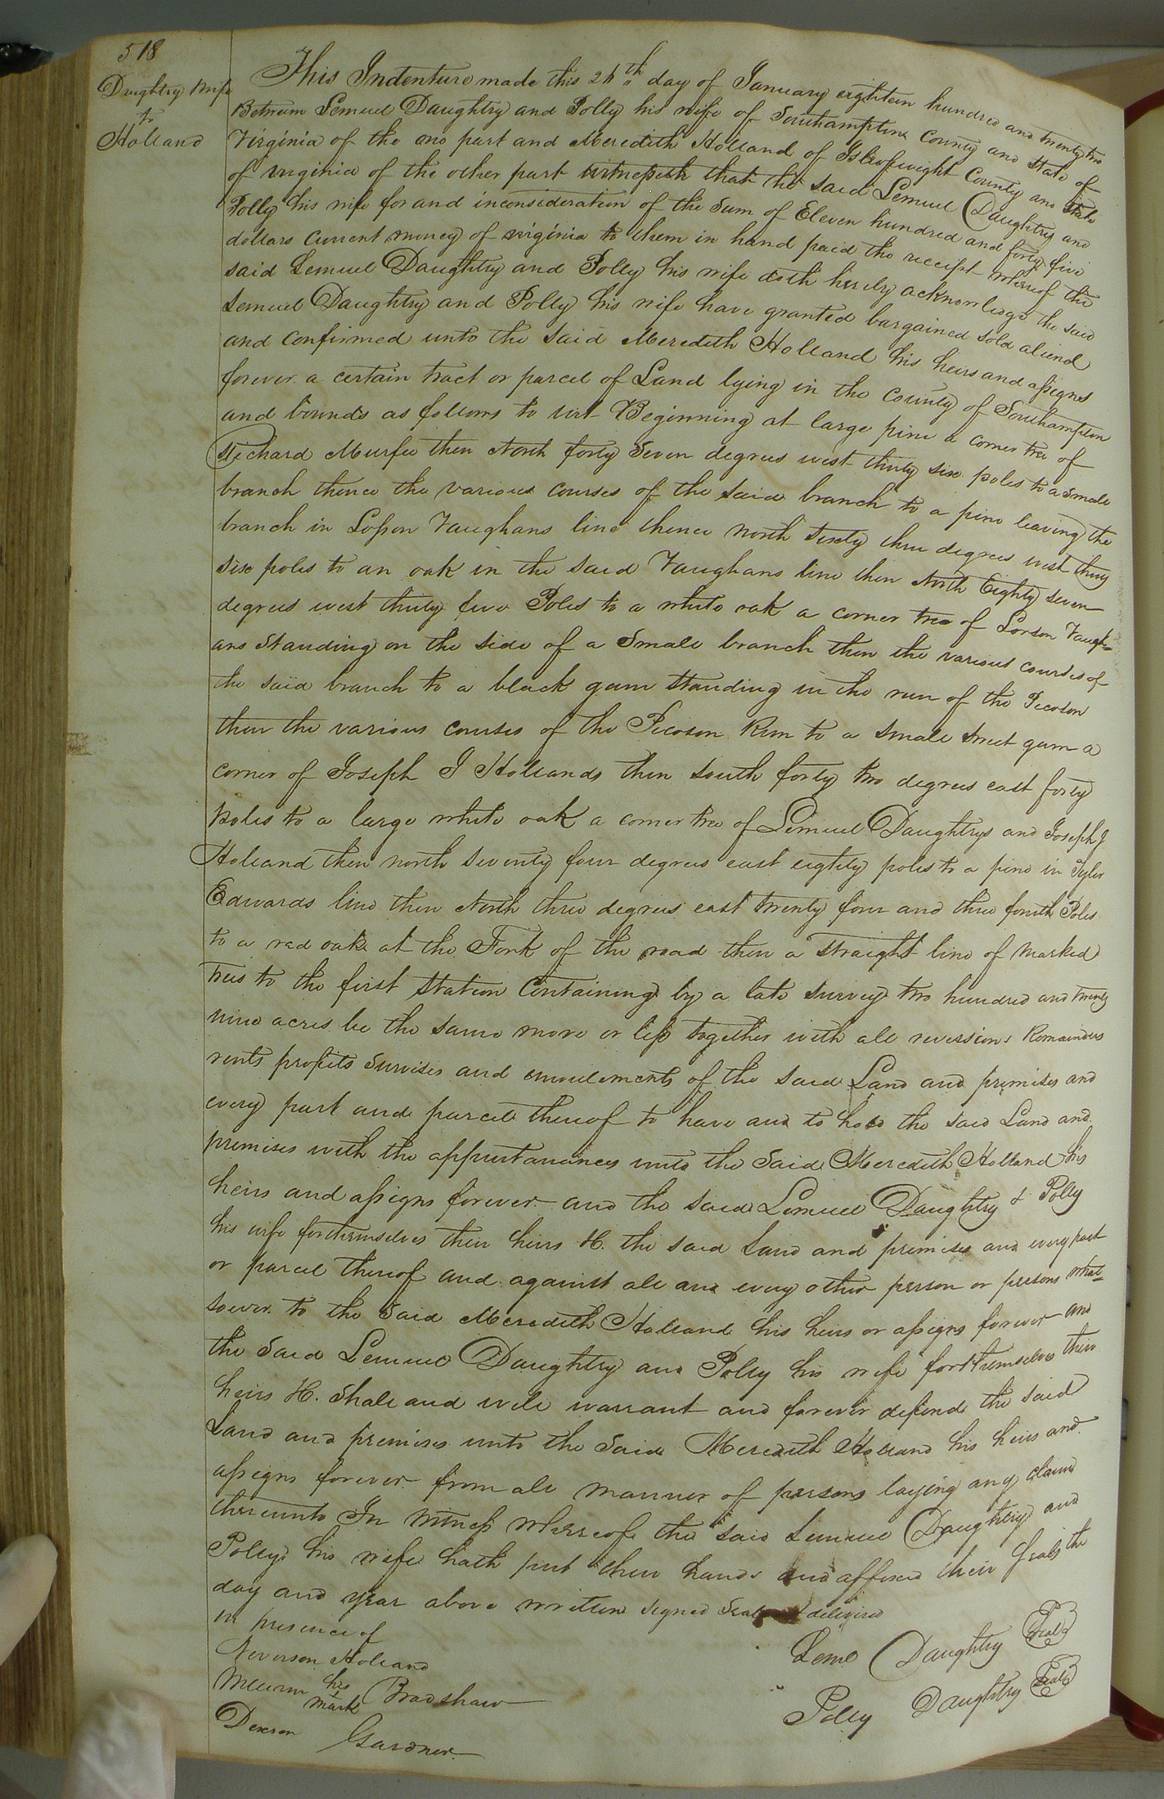 518
Daughtry & wife
to
Holland
This Indenture made this 26th day of January eighteen hundred and twenty two
Between Lemuel Daughtry and Polly his wife of Southampton County and State of
Virginia of the one part and Meredith Holland of Isle of wight County and State
of virginia of the other part witnesseth that the said Lemuel Daughtry and
Polly his wife for and inconsideration of the Sum of Eleven hundred and forty five
dollars current money of virginia to them in hand paid the receipt whereof the
said Lemuel Daughtry and Polly his wife doth hereby acknowledge the said
Lemuel Daughtry and Polly his wife have granted bargained sold aliend
and confirmed unto the said Meredith Holland his heirs and assigns
forever a certain tract or parcel of Land lying in the County of Southampton
and bounds as follows to wit Beginning at large pine a corner tree of
Richard Murfee then North forty Seven degrees west thirty six poles to a small
branch thence the various courses of the said branch to a pine leaving the
branch in Losson Vaughans line thence North sixty three degrees west thirty
six poles to an oak in the said Vaughans line then North Eighty seven
degrees west thirty five Poles to a white oak a corner tree of Lorson Vaugh=
ans Standing on the side of a Small branch then the various courses of
the said branch to a black gum standing in the run of the Pecoson
then the various courses of the Pecoson Run to a small sweet gum a
corner of Joseph J Hollands then south forty two degrees east forty
poles to a large white oak a corner tree of Lemuel Daughtrys and Joseph J
Holland then north seventy four degrees east eighty poles to a pine in
Edwards line then North three degrees east twenty four and three fourth Poles
to a red oak at the Fork of the road then a straight line of marked
trees to the first station Containing by a late survey two hundred and twenty
nine acres be the same more or less together with all reversions Remainders
rents profits Survises and emoluments of the said Land and premises and
every part and parcel thereof to have and to hold the said Land and
premises with the appurtanances unto the Said Meredith Holland his
heirs and assigns forever and the said Lemuel Daughtry & Polly
his wife forthemselves their heirs &c. the said Land and premises and every part
or parcel thereof and against all and every other person or persons what=
soever to the Said Meredith Holland his heirs or assigns forever and
the Said Lemuel Daughtry and Polly his wife for themselves their
heirs &c. Shall and will warrant and forever defend the said
Land and premises unto the Said Meredith Holland his heirs and
assigns forever from all manner of persons laying any claim
thereunto In Witness whereof the said Lemuel Daughtry and
Polly his wife hath put their hands and affixed their seals the
day and year above written signed Seal delivered
in presence of
Neverson Holland
his
Bradshaw
mark
Gardner
Leml Daughtry Seal
Polly Daughtry Seal